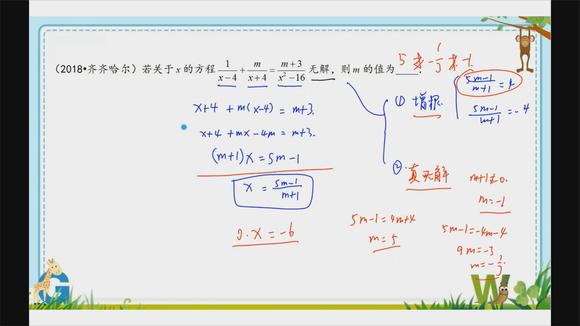 (2018•齐齐哈尔) 若关于x的方程 1/(x-4) + m/(x+4) = (m+3)/(x²-16) 无解，则m的值为____.
5 或 -1/3 或 -1.
x+4 + m(x-4) = m+3.
x+4 + mx - 4m = m+3.
(m+1)x = 5m-1
x = (5m-1)/(m+1)
0·x = -6
① 增根
(5m-1)/(m+1) = 4
(5m-1)/(m+1) = -4
② 真无解
m+1≠0.
m=-1
5m-1=4m+4
m=5
5m-1=-4m-4
9m=-3
m=-1/3
G
W